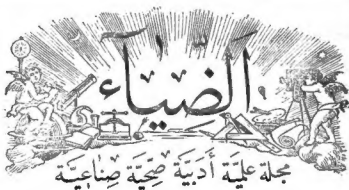 الضّيآء
مجلة علميّة أدبيّة صحّيّة صناعيّة